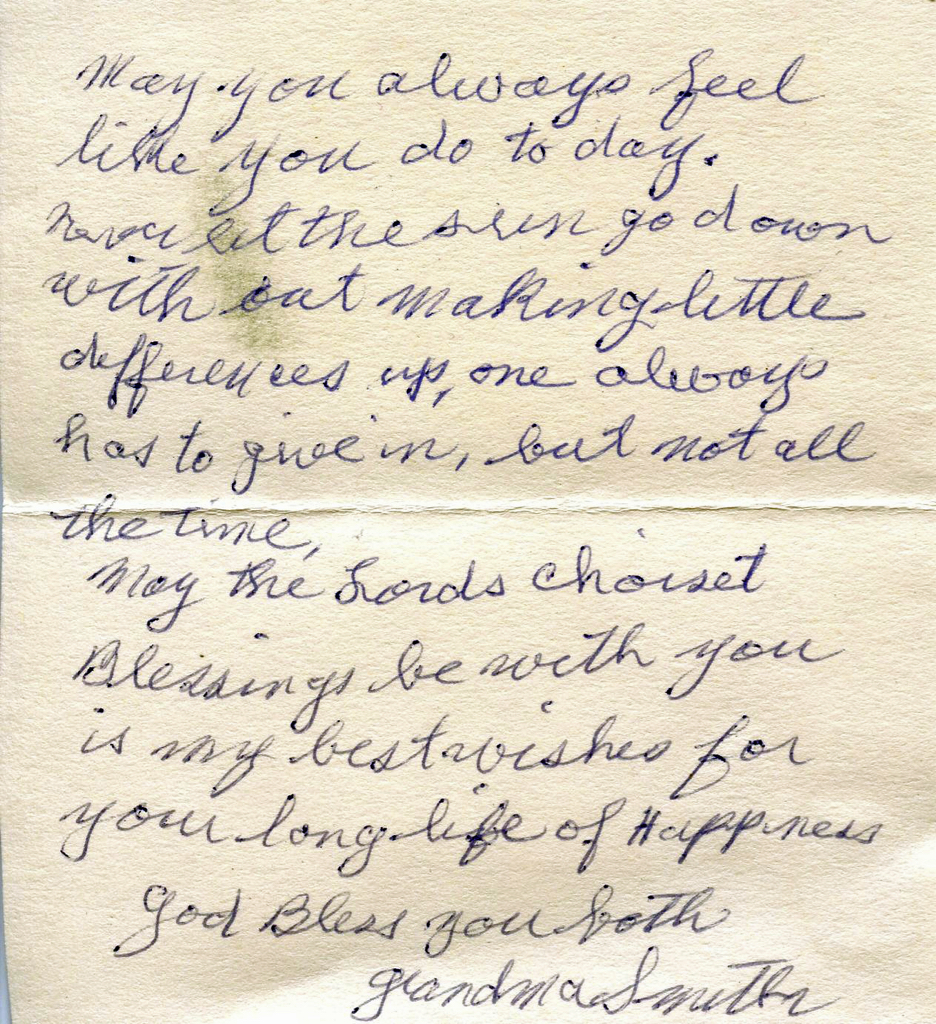 May you always feel
like you do to day.
Never let the sun go down
with out making little
differences up, one always
has to give in, but not all
the time,
May the Lords choiset
Blessings be with you
is my best wishes for
your long life of Happiness
God Bless you both
Grandma Smith